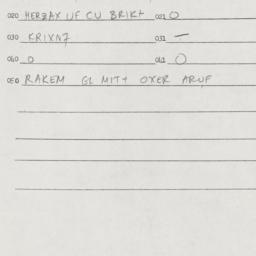 020 HERBAX UF CU BRIKT 021 O
030 KRIXNZ 031 —
040 O 041 O
050 RAKEM GL MITT OXER ARUF